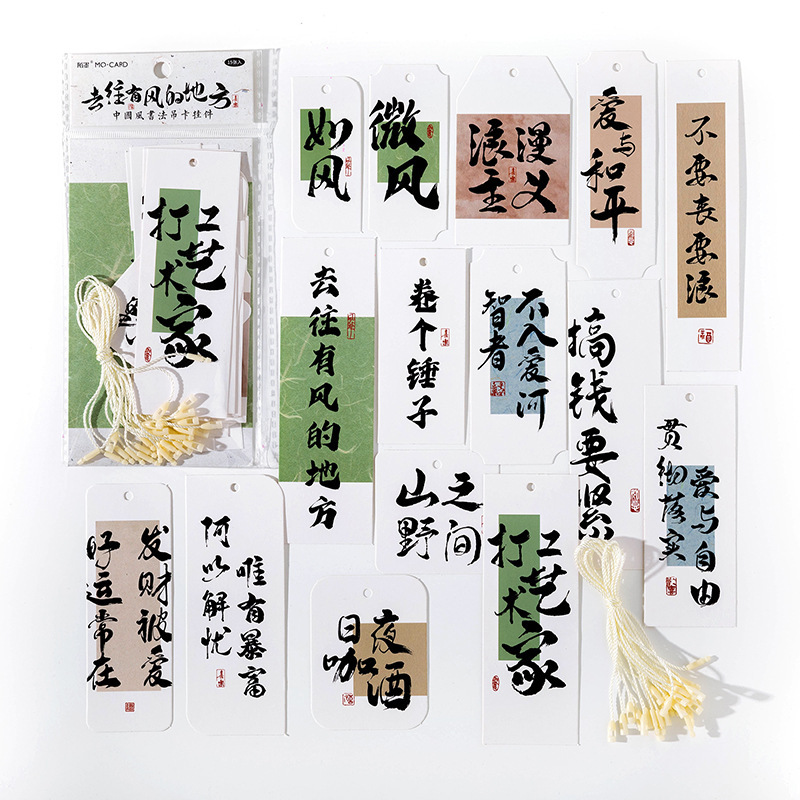 MO·CARD
15张入
去往有风的地方
中國風書法吊卡挂件
打工
艺术家
如风
微风
浪漫
主义
爱与和平
不要丧要浪
去往有风的地方
卷个锤子
智者
不入爱河
搞钱要紧
贯彻落实
爱与自由
山野
之间
打工
艺术家
发财被爱
好运常在
何以解忧
唯有暴富
日咖
夜酒